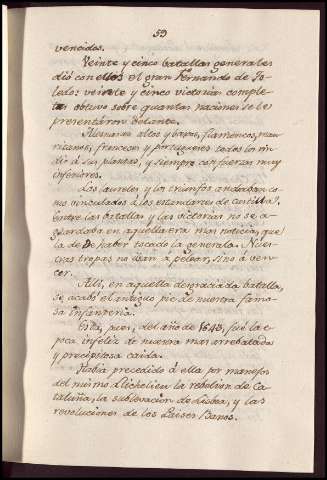 59
vencidos.
Veinte y cinco batallas generales
dió con ellos el gran Fernando de To-
ledo: veinte y cinco victorias comple-
tas obtuvo sobre quantas naciones se le
presentáron delante.
Alemanes altos y baxos, flamencos, mau-
ritanos, franceses y portugueses todos los rin-
dio á sus plantas, y siempre con fuerzas muy
inferiores.
Los laureles y los triunfos andaban co-
mo vinculados á los estandartes de Castilla.
Entre las batallas y las victorias no se a-
guardaba en aquella era mas noticia, que
la de haber tocado la generala. Nues-
tras tropas no iban á pelear, sino á ven-
cer.
Allí, en aquella desgraciada batalla,
se acabó el antiguo pie de nuestra famo-
sa infantería.
Esta, pues, del año de 1643, fué la e-
poca infeliz de nuestra mas arrebatada
y precipitosa caida.
Habia precedido á ella por manejos
del mismo Richelieu la rebelion de Ca-
taluña, la sublevacion de Lisboa, y las
revoluciones de los Paises Baxos.